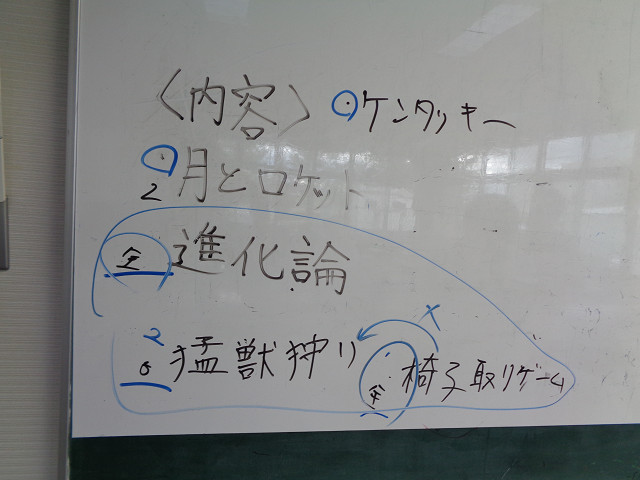 〈内容〉 ・ケンタッキー
・月とロケット
2
全 進化論
2
6 猛獣狩り
全 椅子取りゲーム